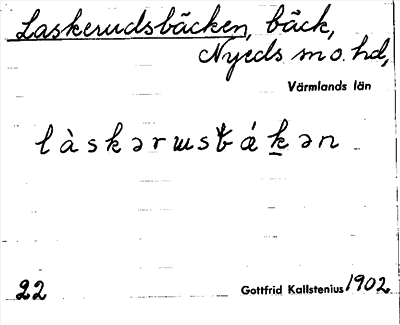 Laskerudsbäcken, bäck,
Nyeds sn o. hd,
Värmlands län
làskərɯsbǽkən
22
Gottfrid Kallstenius 1902